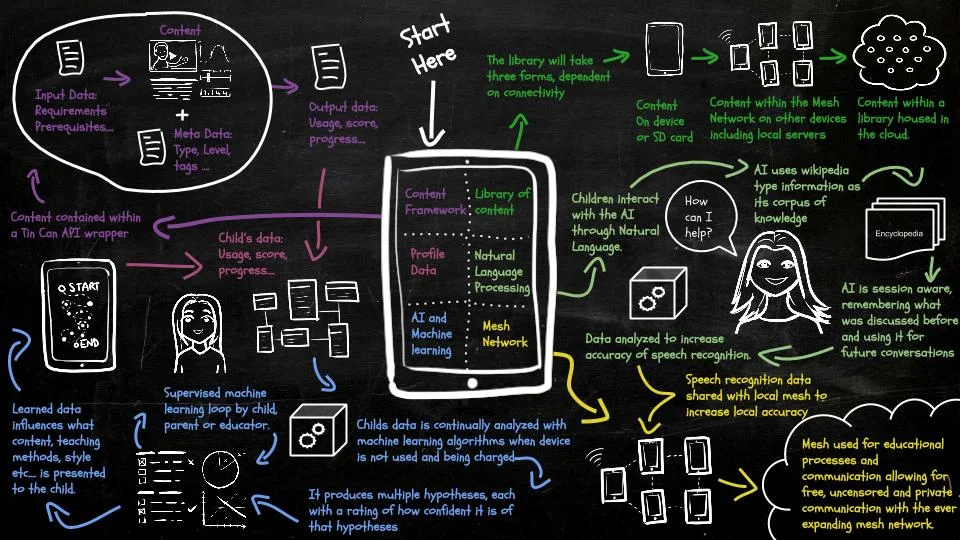 Start
Here
Content
Input Data:
Requirements
Prerequisites...
+
Meta Data:
Type, Level,
tags ....
Output data:
Usage, score,
progress...
Content contained within
a Tin Can API wrapper
The library will take
three forms, dependent
on connectivity
Content
On device
or SD card
Content within the Mesh
Network on other devices
including local servers
Content within a
library housed in
the cloud.
Content
Framework
Library of
content
Profile
Data
Natural
Language
Processing
AI and
Machine
learning
Mesh
Network
Children interact
with the AI
through Natural
Language.
How
can I
help?
AI uses wikipedia
type information as
its corpus of
knowledge
Encyclopedia
AI is session aware,
remembering what
was discussed before
and using it for
future conversations
Data analyzed to increase
accuracy of speech recognition.
Speech recognition data
shared with local mesh to
increase local accuracy
Mesh used for educational
processes and
communication allowing for
free, uncensored and private
communication with the ever
expanding mesh network.
Child's data:
Usage, score,
progress...
START
END
Supervised machine
learning loop by child,
parent or educator.
Childs data is continually analyzed with
machine learning algorithms when device
is not used and being charged
It produces multiple hypotheses, each
with a rating of how confident it is of
that hypotheses
Learned data
influences what
content, teaching
methods, style
etc... is presented
to the child.